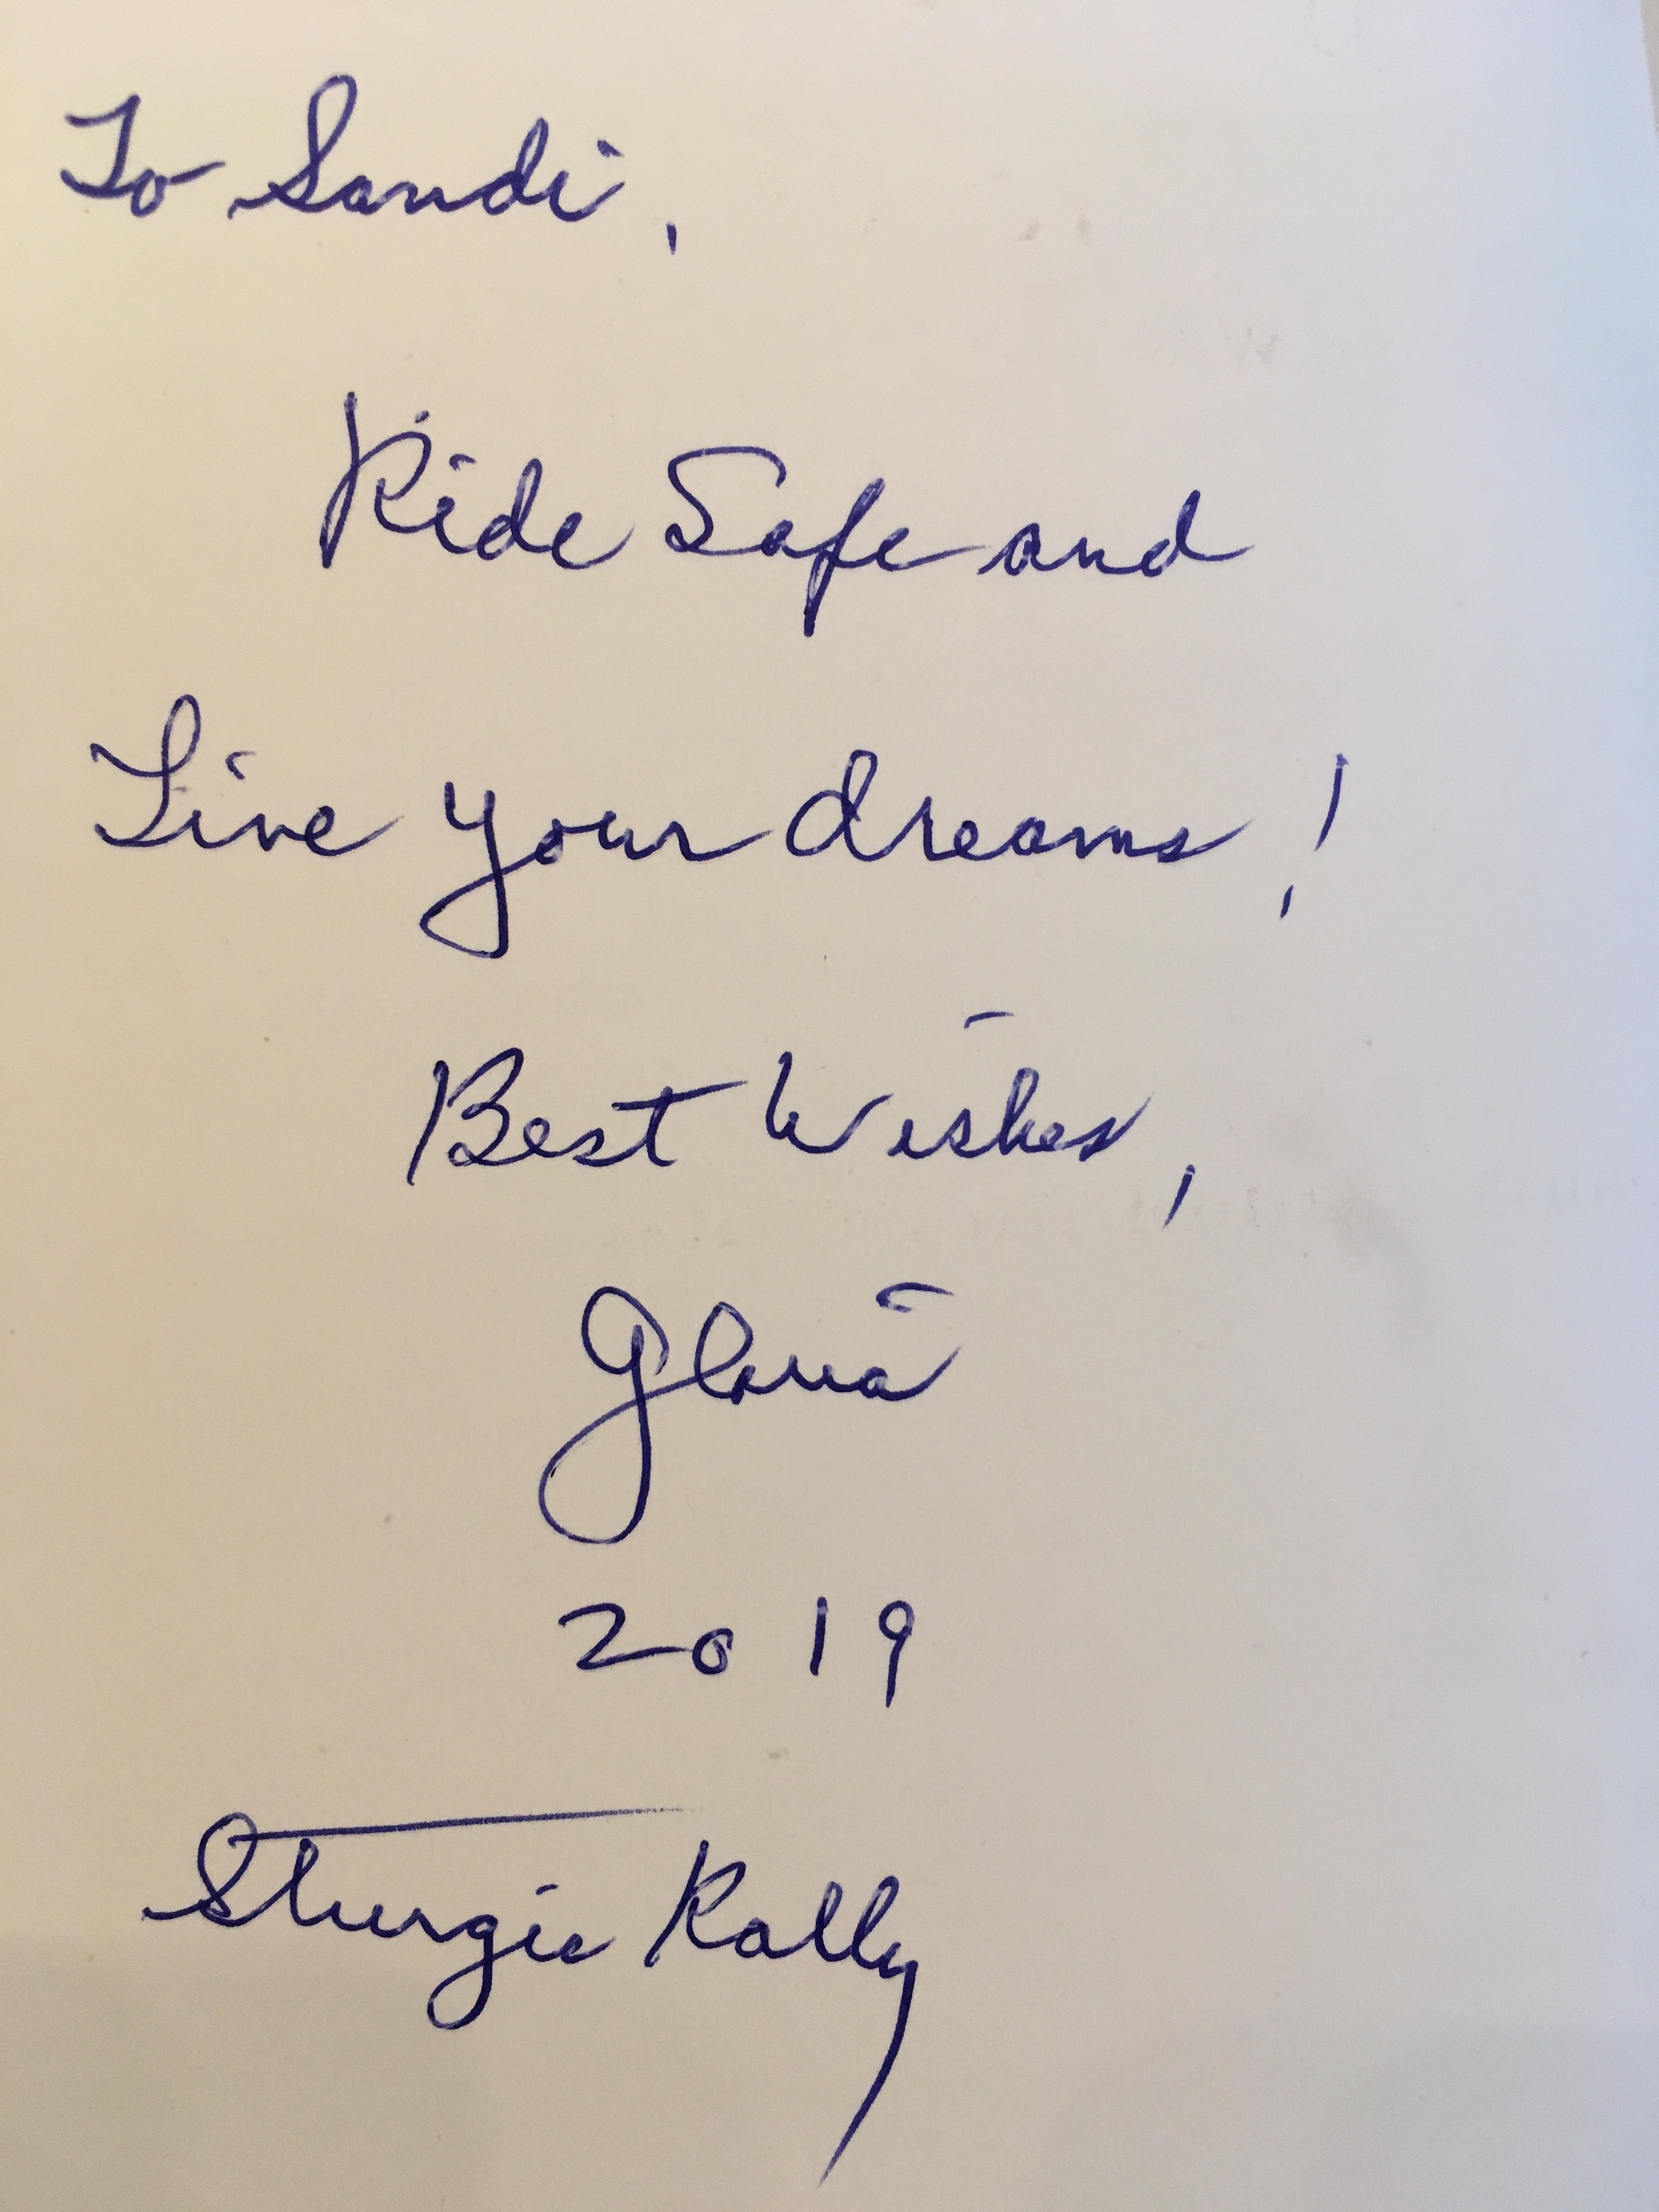 To Sandi,
Ride Safe and
Live your dreams!
Best Wishes,
Gloria
2019
Sturgis Rally